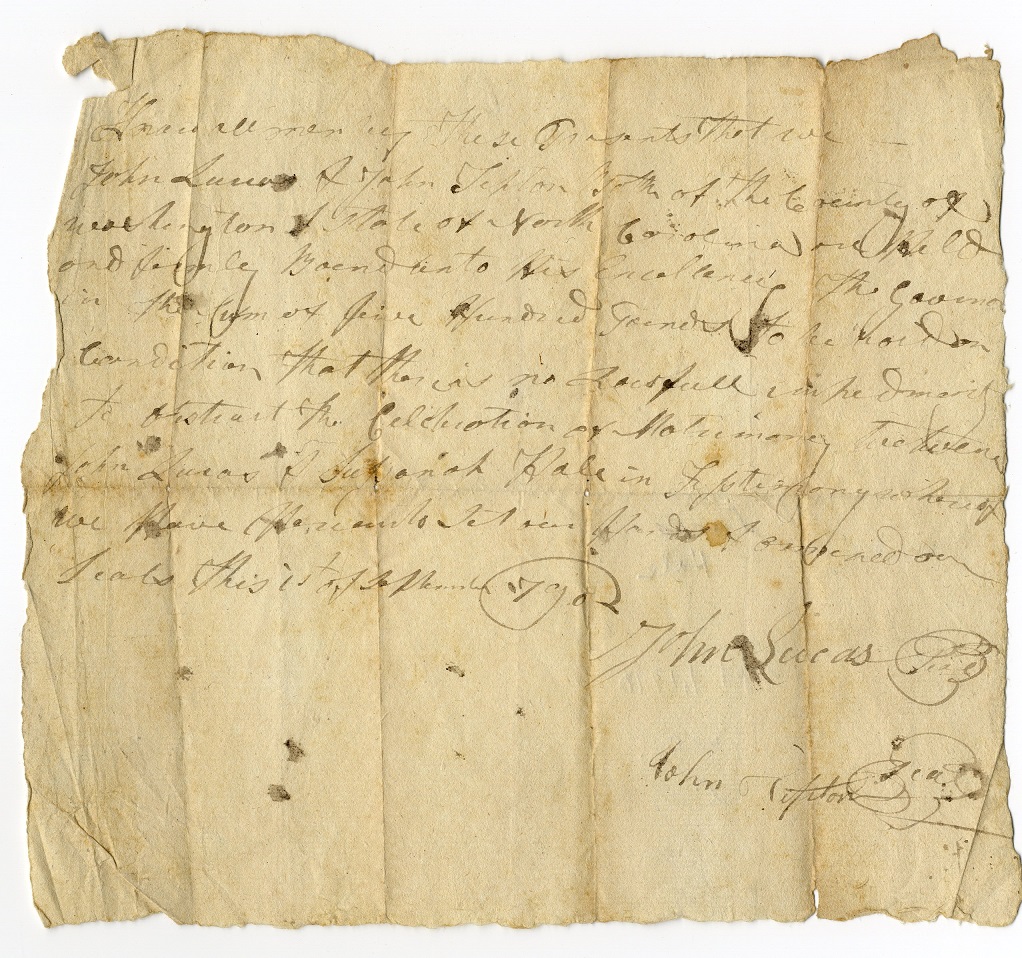 Know all men by These Presents That we
John Lucas & John Tipton Both of the County of
washington & State of North Carolina are Held
and firmly Bound unto His Excellency The Govenor
in The Sum of five Hundred Pounds To be void on
Condition That there is no Lawfull impediment
To obstruct The Celebration of Matrimony between
John Lucas & Susanah Hale in Testimony wherof
we Have Hereunto Set our Hands & our
Seals This 1st of September 1790
John Lucas Seal
John Tipton Seal